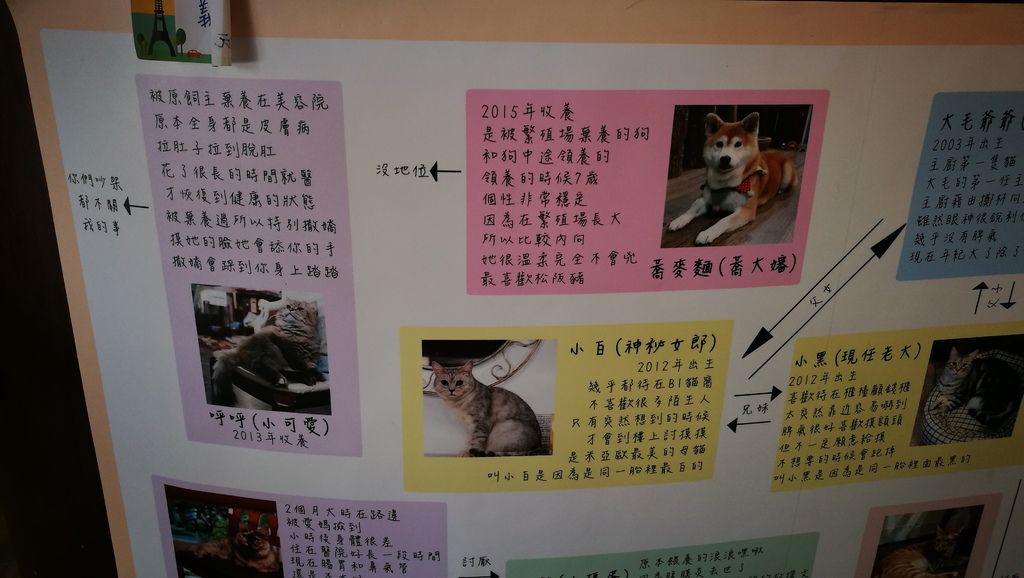 被原飼主棄養在美容院
原本全身都是皮膚病
拉肚子拉到脫肛
花了很長的時間就醫
才恢復到健康的狀態
被棄養過所以特別撒嬌
摸她的臉她會舔你的手
撒嬌會踩到你身上踏踏
呼呼(小可愛)
2013年收養
你們吵架
都不關
我的事
2015年收養
是被繁殖場棄養的狗
和狗中途領養的
領養的時候7歲
個性非常穩定
因為在繁殖場長大
所以比較內向
她很溫柔完全不會兇
最喜歡松阪豬
蕎麥麵(蕎大嬸)
沒地位
大毛爺爺(
2003年出生
主廚第一隻貓
大毛的第一任主
主廚藉由
雖然眼神很銳利
幾乎沒有脾氣
現在年紀大了除了
父女
父子
小白(神祕女郎)
2012年出生
幾乎都待在B1貓窩
不喜歡很多陌生人
只有突然想到的時候
才會到樓上討摸摸
是米亞歐最美的母貓
叫小白是因為是同一胎裡最白的
兄妹
小黑(現任老大)
2012年出生
喜歡待在櫃檯顧錢櫃
太突然靠近容易嚇到
脾氣很好喜歡摸額頭
但不一定願意給摸
不想要的時候會記得
叫小黑是因為是同一胎裡面最黑的
2個月大時在路邊
被愛媽撿到
小時後身體很差
住在醫院好長一段時間
現在腸胃和鼻氣管
討厭
原本領養的浪浪嘿啾